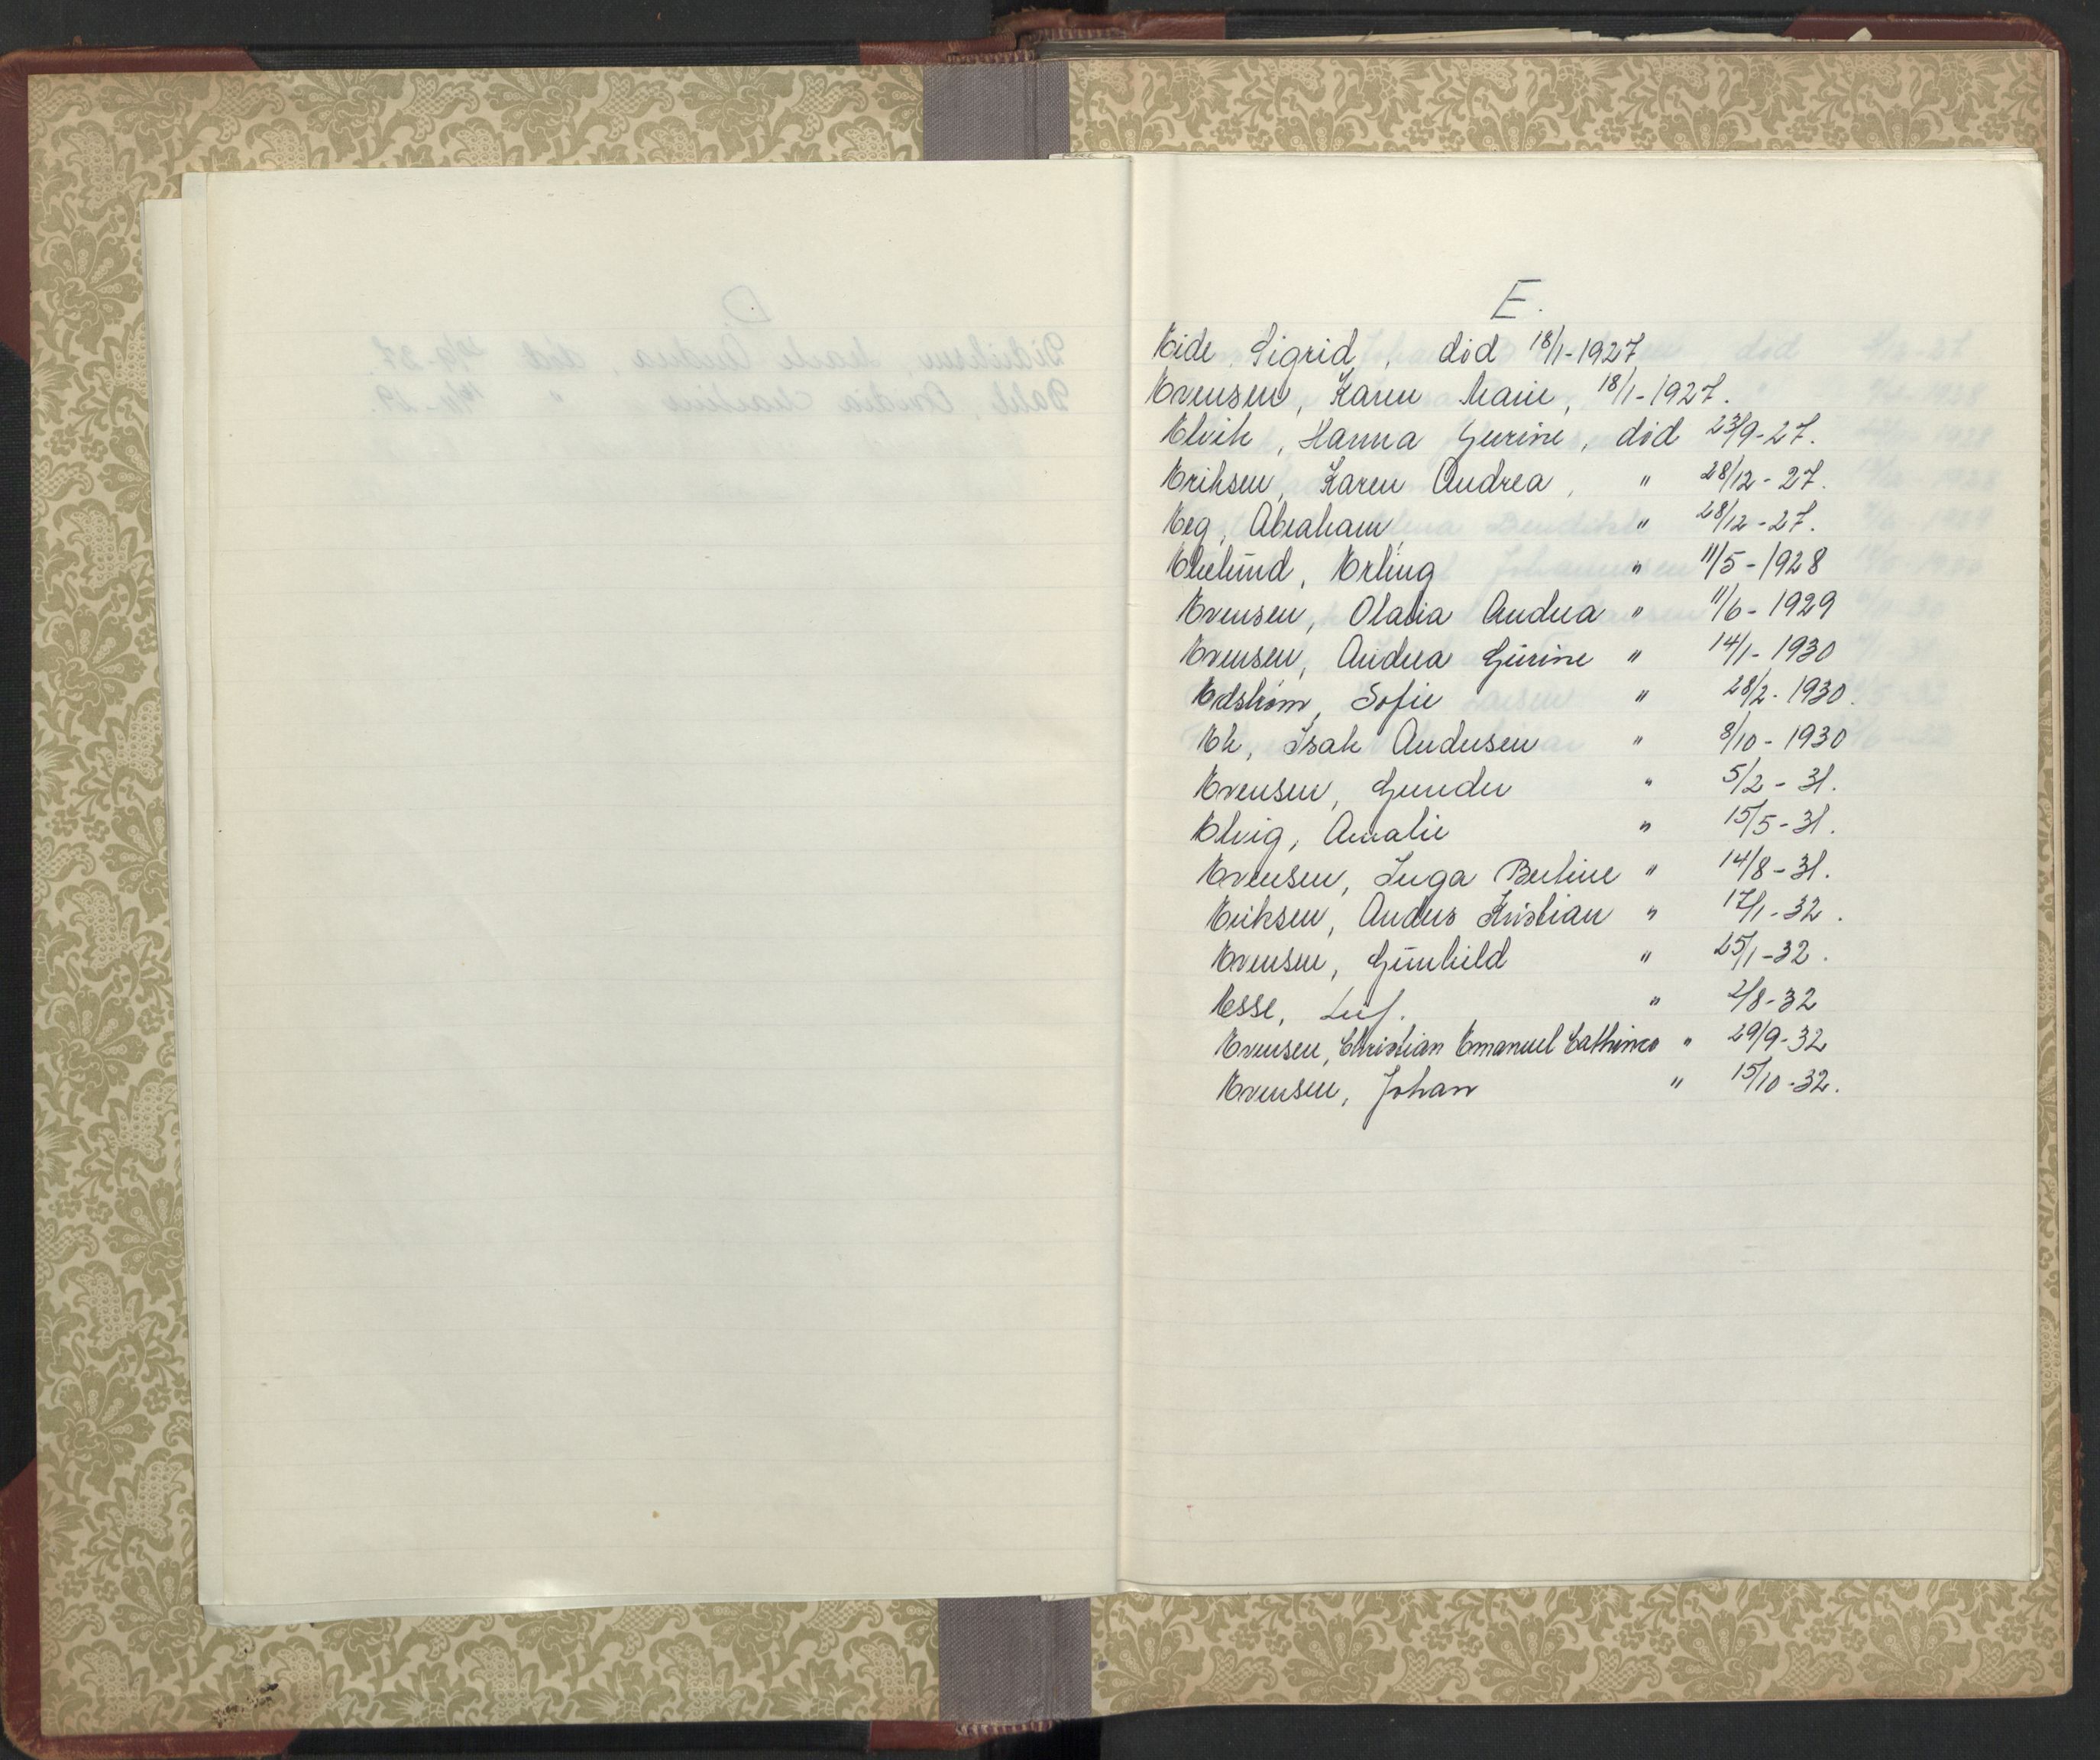 E.
Eide, Sigrid, död 18/1-1927
Evensen, Karen Marie, 18/1-1927.
Elvik, Hanna Gurine, död 23/9-27.
Eriksen, Karen Andrea, " 28/12-27.
Eeg, Abraham, " 28/12-27.
Ekelund, Erling " 11/5-1928
Evensen, Olava Andrea " 11/6-1929
Evensen, Andrea Gurine " 14/1-1930
Edstrøm, Sofie " 28/2-1930.
Ek, Isak Andersen " 8/10-1930
Evensen, Gunder " 5/2-31.
Elvig, Amalie " 15/5-31.
Evensen, Inga Bertine " 14/8-31.
Eriksen, Anders Kristian " 17/1-32.
Evensen, Gunhild " 25/1-32.
Esse, Leif. " 2/8-32
Evensen, Christian Emanuel " 29/9-32
Evensen, Johan " 15/10-32.